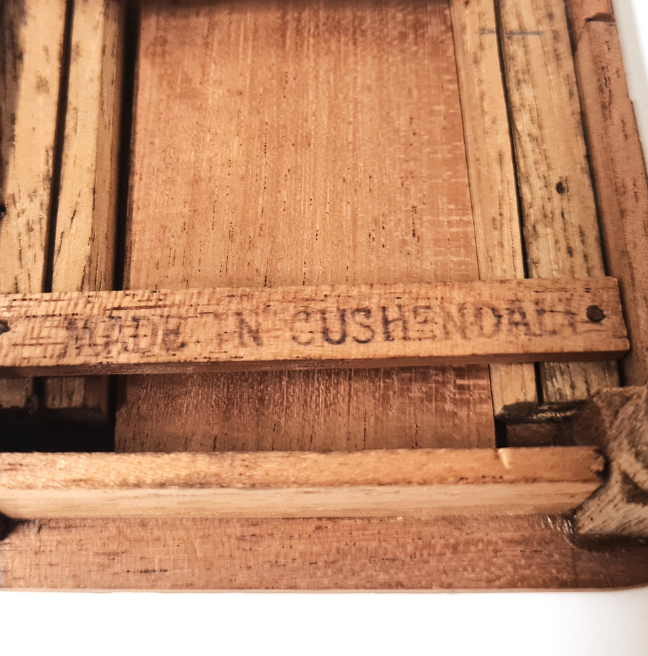 MADE IN CUSHENDALL